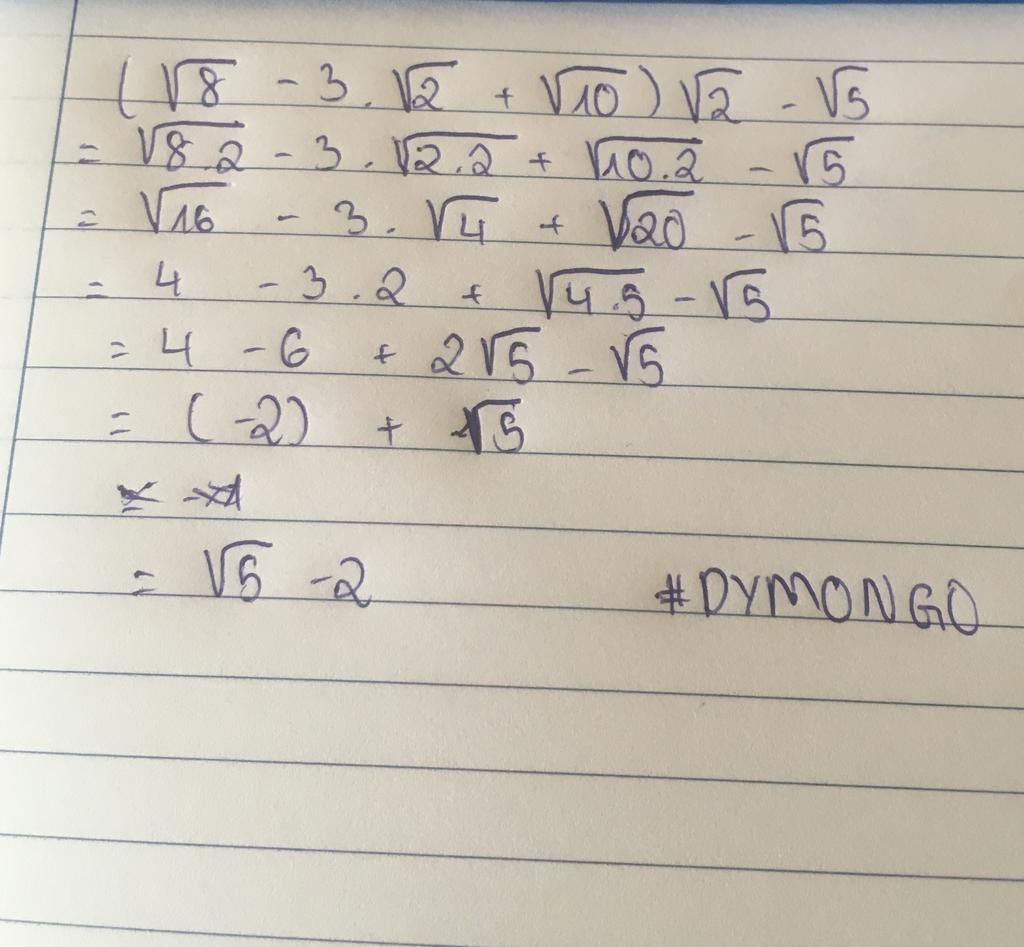 (√8 - 3.√2 + √10)√2 - √5
= √8.2 - 3.√2.2 + √10.2 - √5
= √16 - 3.√4 + √20 - √5
= 4 - 3.2 + √4.5 - √5
= 4 - 6 + 2√5 - √5
= (-2) + √5
= √5 - 2
#DYMONGO